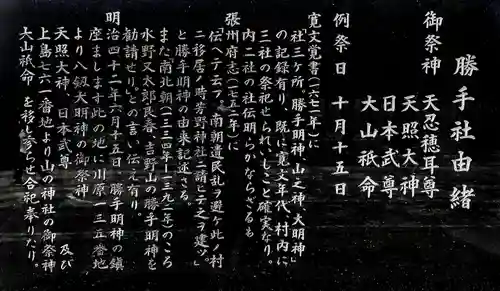 勝手社由緒
御祭神 天忍穂耳尊
天照大神
日本武尊
大山祇命
例祭日 十月十五日
寛文覚書(一六七二年)に
「社三ケ所。勝手明神、山之神、大明神」
の記録有り、既に寛文年代、村内に
三社の祭祀せられいしこと確実なり。
内二社の社伝明らかならざるも
張州府志(一七五二年)に
伝ヘテ云フ、南朝遺民乱ヲ避ケ此ノ村
ニ移居ノ時芳野神社ニ請ヒテ之ヲ建ツ。」
と勝手明神の由来記述さる。
また南北朝(一三三四年ー一三九二年)のころ
水野又太郎良春、吉野山の勝手明神を
勧請せり。との言い伝え有り。
明治四十二年六月十五日、勝手明神の鎮
座まします此の地に川原一三五番地
より八剱大明神の御祭神
天照大神 日本武尊 及び
上島七六一番地より山の神社の御祭神
大山祇命 を移し参らせ合祀奉りたり。